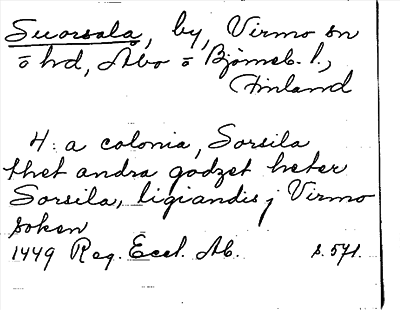 Suorsala, by, Virmo sn
o hd, Åbo o Björneb. l.,
Finland
4: a colonia, Sorsila
thet andra godzet heter
Sorsila, ligiandis j Virmo
soken
1449 Reg. Eccl. Ab. s. 571.